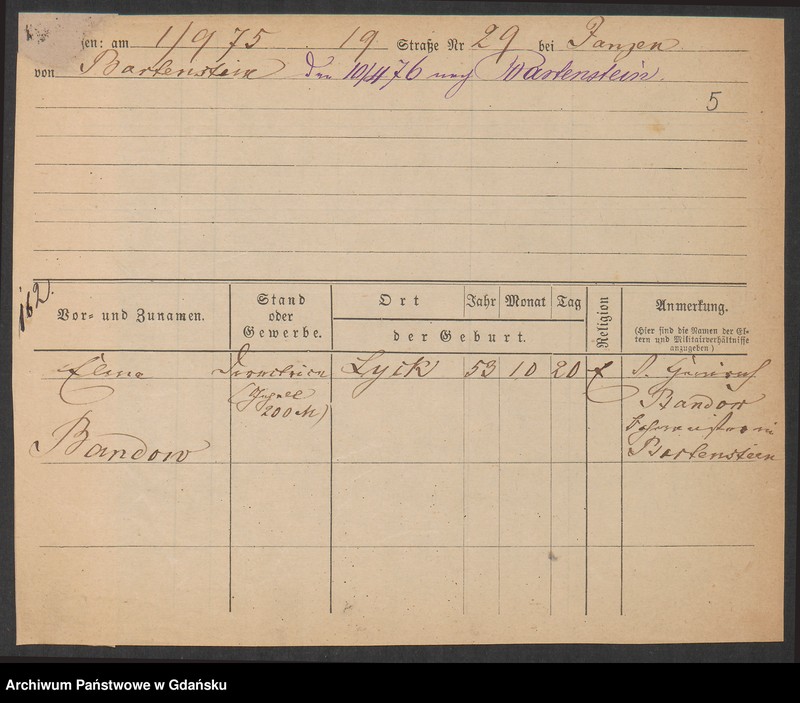 en: am 1/9 75 19 Straße Nr 29 bei Janzen
von Bartenstein Den 10/4 76 nach Bartenstein.
5
162.
Vor- und Zunamen.
Stand
oder
Gewerbe.
Ort
der Geburt.
Jahr
Monat
Tag
Religion
Anmerkung.
(Hier sind die Namen der El-
tern und Militairverhältnisse
anzugeben)
Directrice
Lyck 53 10 20
200 M)
Bandow
Bandow
Bartenstein
Archiwum Państwowe w Gdańsku